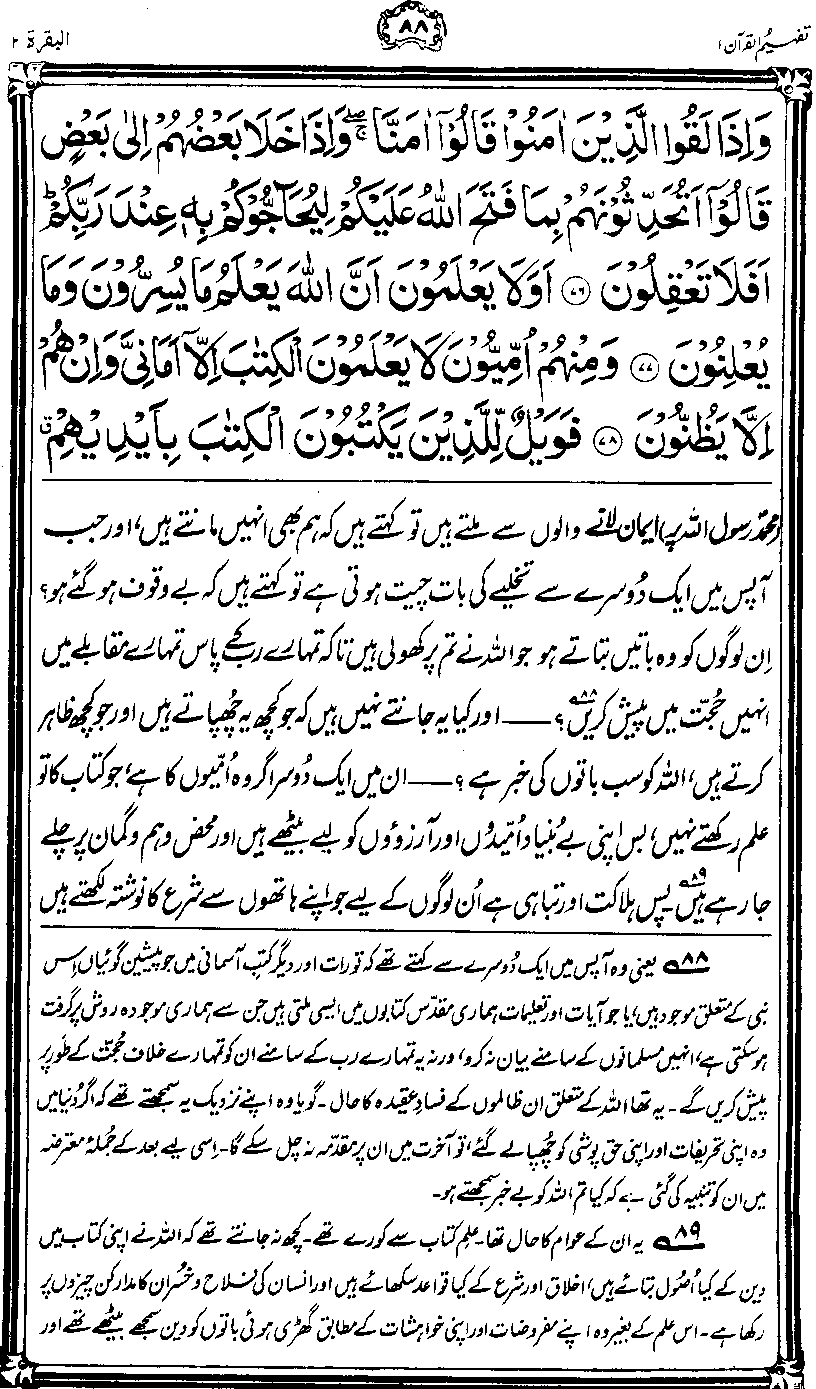 تفہیم القرآن ۱
۸۸
البقرۃ ۲
وَاِذَا لَقُوا الَّذِيْنَ اٰمَنُوْا قَالُوْٓا اٰمَنَّا ۚۖ وَاِذَا خَلَا بَعْضُهُمْ اِلٰى بَعْضٍ
قَالُوْٓا اَتُحَدِّثُوْنَهُمْ بِمَا فَتَحَ اللّٰهُ عَلَيْكُمْ لِيُحَآجُّوْكُمْ بِهٖ عِنْدَ رَبِّكُمْ ؕ
اَفَلَا تَعْقِلُوْنَ ﴿۷۶﴾ اَوَلَا يَعْلَمُوْنَ اَنَّ اللّٰهَ يَعْلَمُ مَا يُسِرُّوْنَ وَمَا
يُعْلِنُوْنَ ﴿۷۷﴾ وَمِنْهُمْ اُمِّيُّوْنَ لَا يَعْلَمُوْنَ الْكِتٰبَ اِلَّآ اَمَانِيَّ وَاِنْ هُمْ
اِلَّا يَظُنُّوْنَ ﴿۷۸﴾ فَوَيْلٌ لِّلَّذِيْنَ يَكْتُبُوْنَ الْكِتٰبَ بِاَيْدِيْهِمْ ۗ
(محمد رسول اللہ پر) ایمان لانے والوں سے ملتے ہیں تو کہتے ہیں کہ ہم بھی انہیں مانتے ہیں، اور جب
آپس میں ایک دُوسرے سے تخلیے کی بات چیت ہوتی ہے تو کہتے ہیں کہ بے وقوف ہو گئے ہو؟
اِن لوگوں کو وہ باتیں بتاتے ہو جو اللہ نے تم پر کھولی ہیں تاکہ تمہارے رب کے پاس تمہارے مقابلے میں
انہیں حُجّت میں پیش کریں۸۸؟ —— اور کیا یہ جانتے نہیں ہیں کہ جو کچھ یہ چُھپاتے ہیں اور جو کچھ ظاہر
کرتے ہیں، اللہ کو سب باتوں کی خبر ہے؟ —— ان میں ایک دُوسرا گروہ اُمّیوں کا ہے، جو کتاب کا تو
علم رکھتے نہیں، بس اپنی بے بُنیاد اُمّیدوں اور آرزوؤں کو لیے بیٹھے ہیں اور محض وہم و گمان پر چلے
جا رہے ہیں۸۹۔ پس ہلاکت اور تباہی ہے اُن لوگوں کے لیے جو اپنے ہاتھوں سے شرع کا نوشتہ لکھتے ہیں
۸۸ یعنی وہ آپس میں ایک دُوسرے سے کہتے تھے کہ تورات اور دیگر کتب آسمانی میں جو پیشین گوئیاں اِس
نبی کے متعلق موجود ہیں، یا جو آیات اور تعلیمات ہماری مقدّس کتابوں میں ایسی ملتی ہیں جن سے ہماری موجودہ روش پر گرفت
ہو سکتی ہے، انہیں مسلمانوں کے سامنے بیان نہ کرو، ورنہ یہ تمہارے رب کے سامنے ان کو تمہارے خلاف حُجّت کے طور پر
پیش کریں گے۔ یہ تھا اللہ کے متعلق ان ظالموں کے فسادِ عقیدہ کا حال۔ گویا وہ اپنے نزدیک یہ سمجھتے تھے کہ اگر دُنیا میں
وہ اپنی تحریفات اور اپنی حق پوشی کو چُھپا لے گئے، تو آخرت میں ان پر مقدّمہ نہ چل سکے گا۔ اِسی لیے بعد کے جُملۂ معترضہ
میں ان کو تنبیہ کی گئی ہے کہ کیا تم اللہ کو بے خبر سمجھتے ہو۔
۸۹ یہ ان کے عوام کا حال تھا۔ علمِ کتاب سے کورے تھے۔ کچھ نہ جانتے تھے کہ اللہ نے اپنی کتاب میں
دین کے کیا اُصُول بتائے ہیں، اخلاق اور شرع کے کیا قواعد سکھائے ہیں اور انسان کی فلاح و خُسران کا مدار کن چیزوں پر
رکھا ہے۔ اس علم کے بغیر وہ اپنے مفروضات اور اپنی خواہشات کے مطابق گھڑی ہوئی باتوں کو دین سمجھے بیٹھے تھے اور